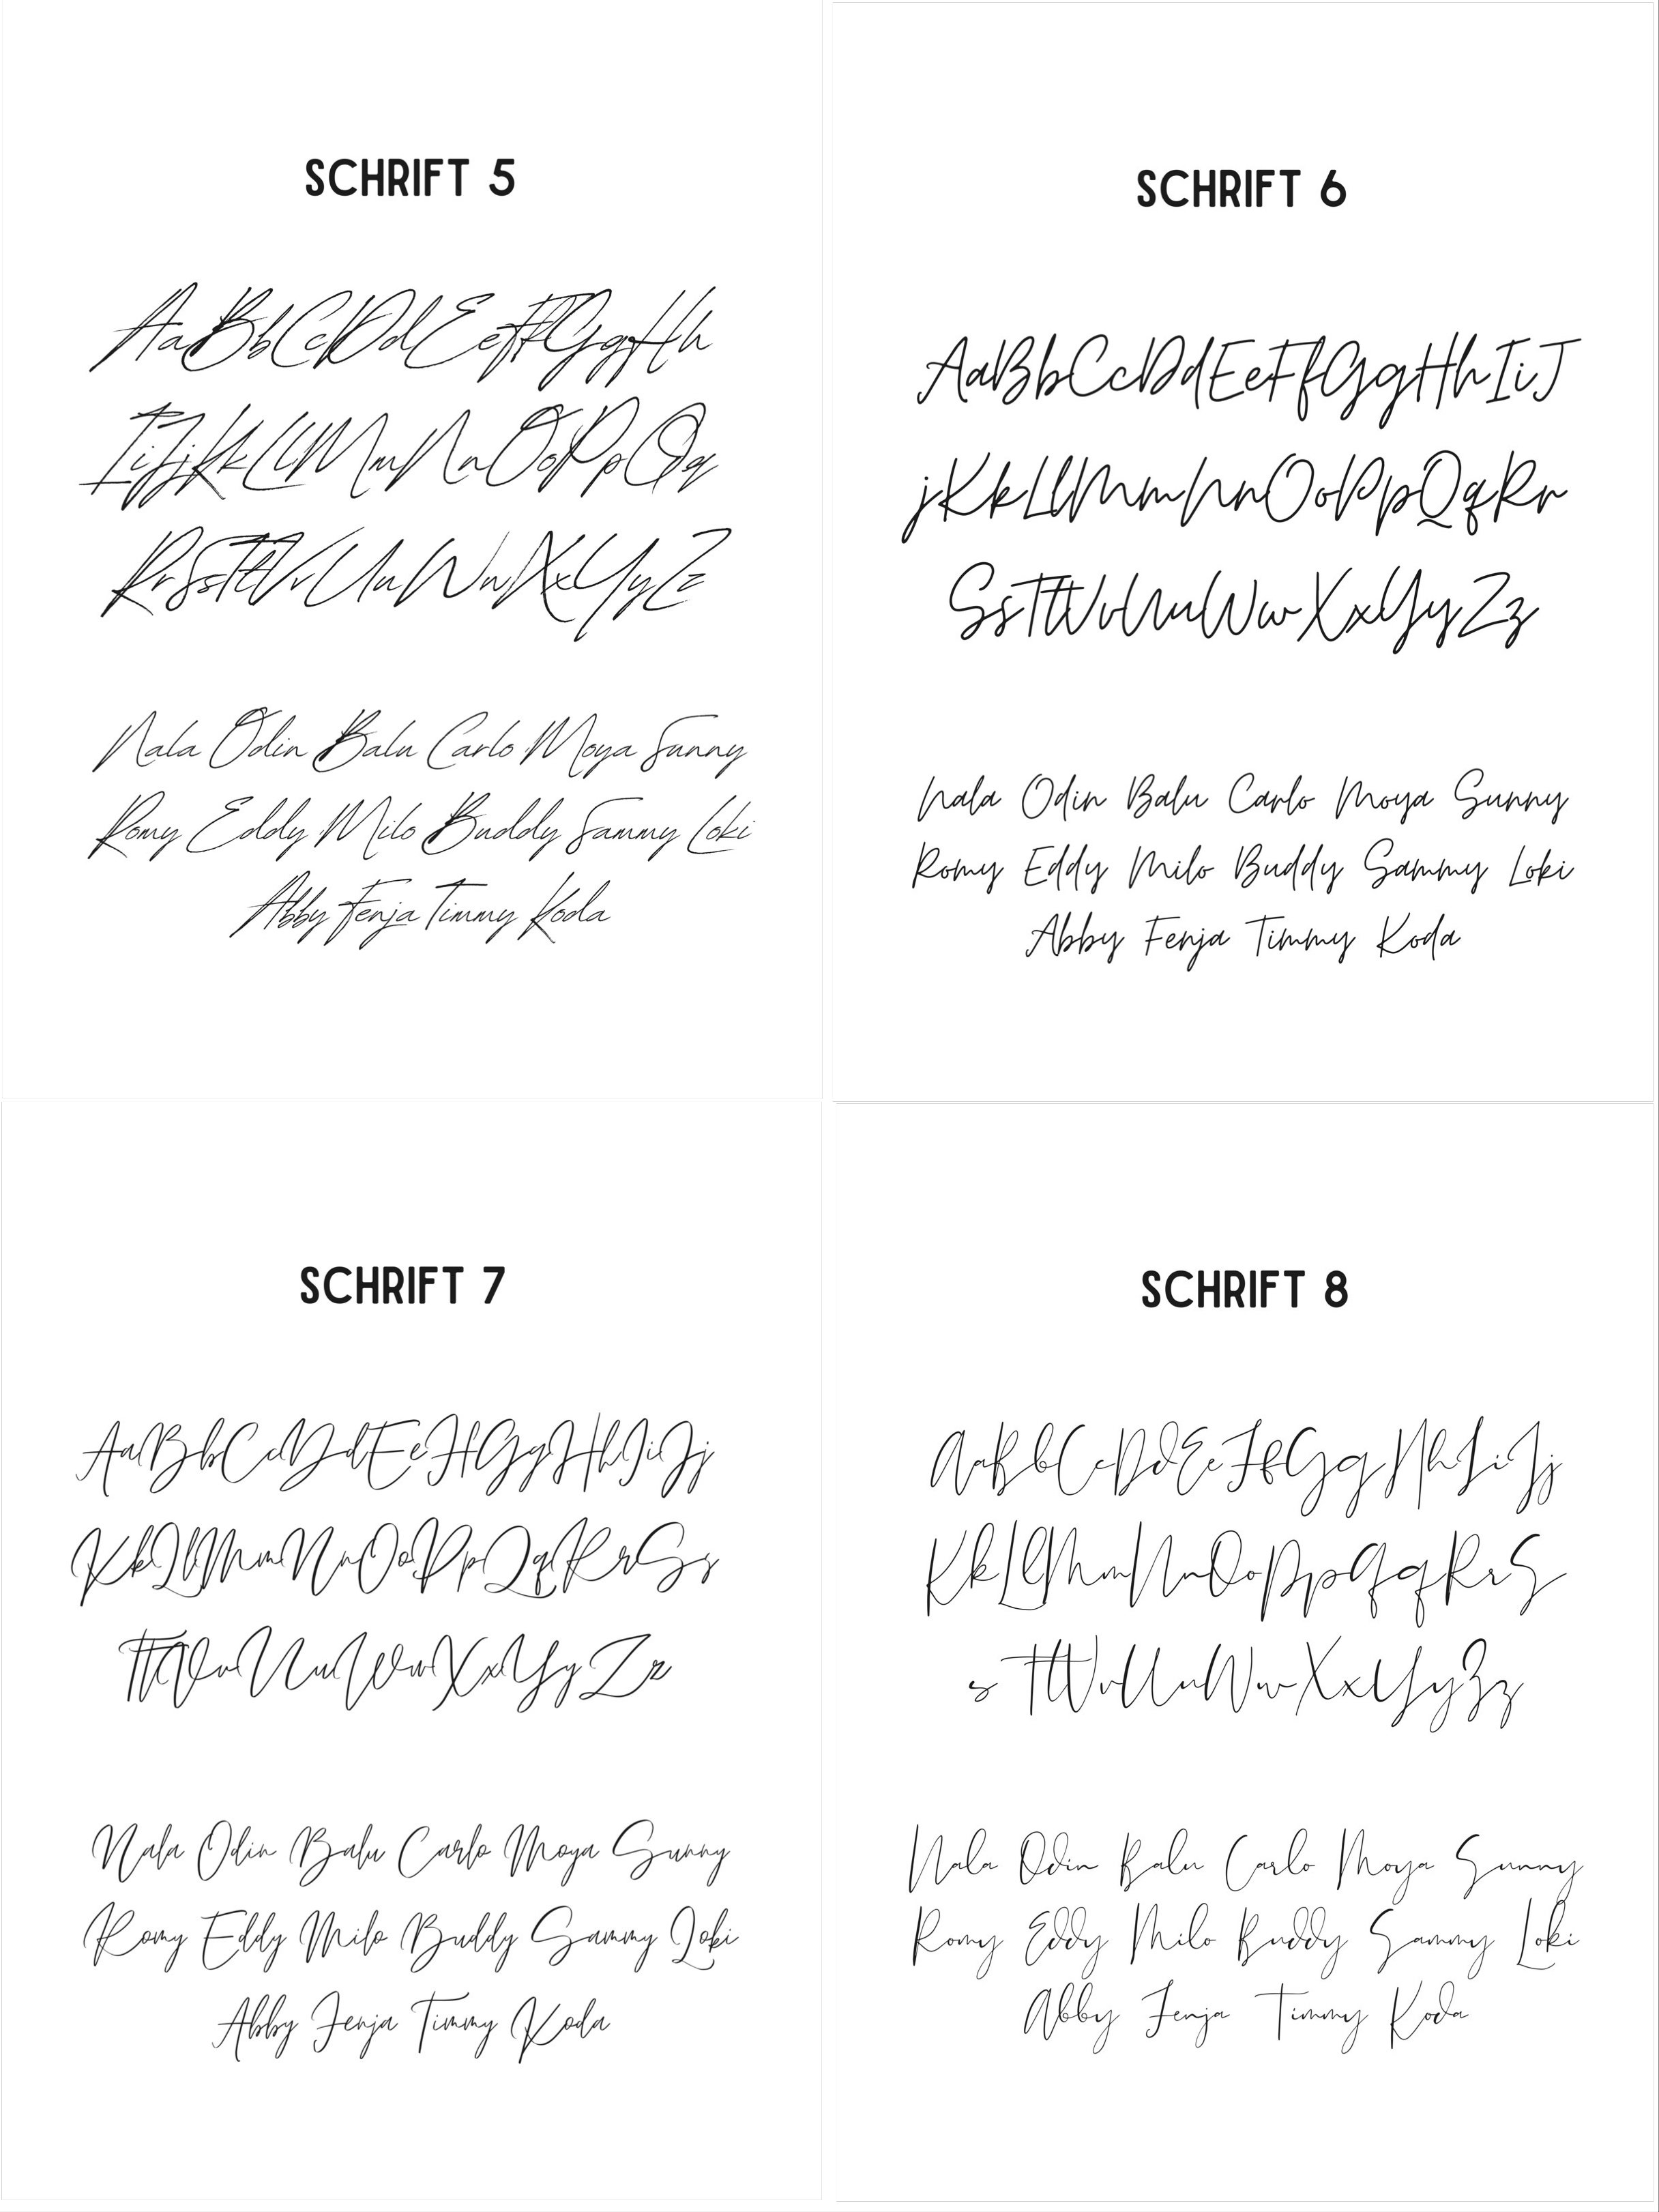 SCHRIFT 5
AaBbCcDdEeFfGgHh
IiJjKkLlMmNnOoPpQq
RrSsTtVvUuWwXxYyZz
Nala Odin Balu Carlo Moya Sunny
Romy Eddy Milo Buddy Sammy Loki
Abby Fenja Timmy Koda
SCHRIFT 6
AaBbCcDdEeFfGgHhIiJ
jKkLlMmNnOoPpQqRr
SsTtVvUuWwXxYyZz
Nala Odin Balu Carlo Moya Sunny
Romy Eddy Milo Buddy Sammy Loki
Abby Fenja Timmy Koda
SCHRIFT 7
AaBbCcDdEeFfGgHhIiJj
KkLlMmNnOoPpQqRrSs
TtVvUuWwXxYyZz
Nala Odin Balu Carlo Moya Sunny
Romy Eddy Milo Buddy Sammy Loki
Abby Fenja Timmy Koda
SCHRIFT 8
AaBbCcDdEeFfGgHhIiJj
KkLlMmNnOoPpQqRrS
sTtVvUuWwXxYyZz
Nala Odin Balu Carlo Moya Sunny
Romy Eddy Milo Buddy Sammy Loki
Abby Fenja Timmy Koda